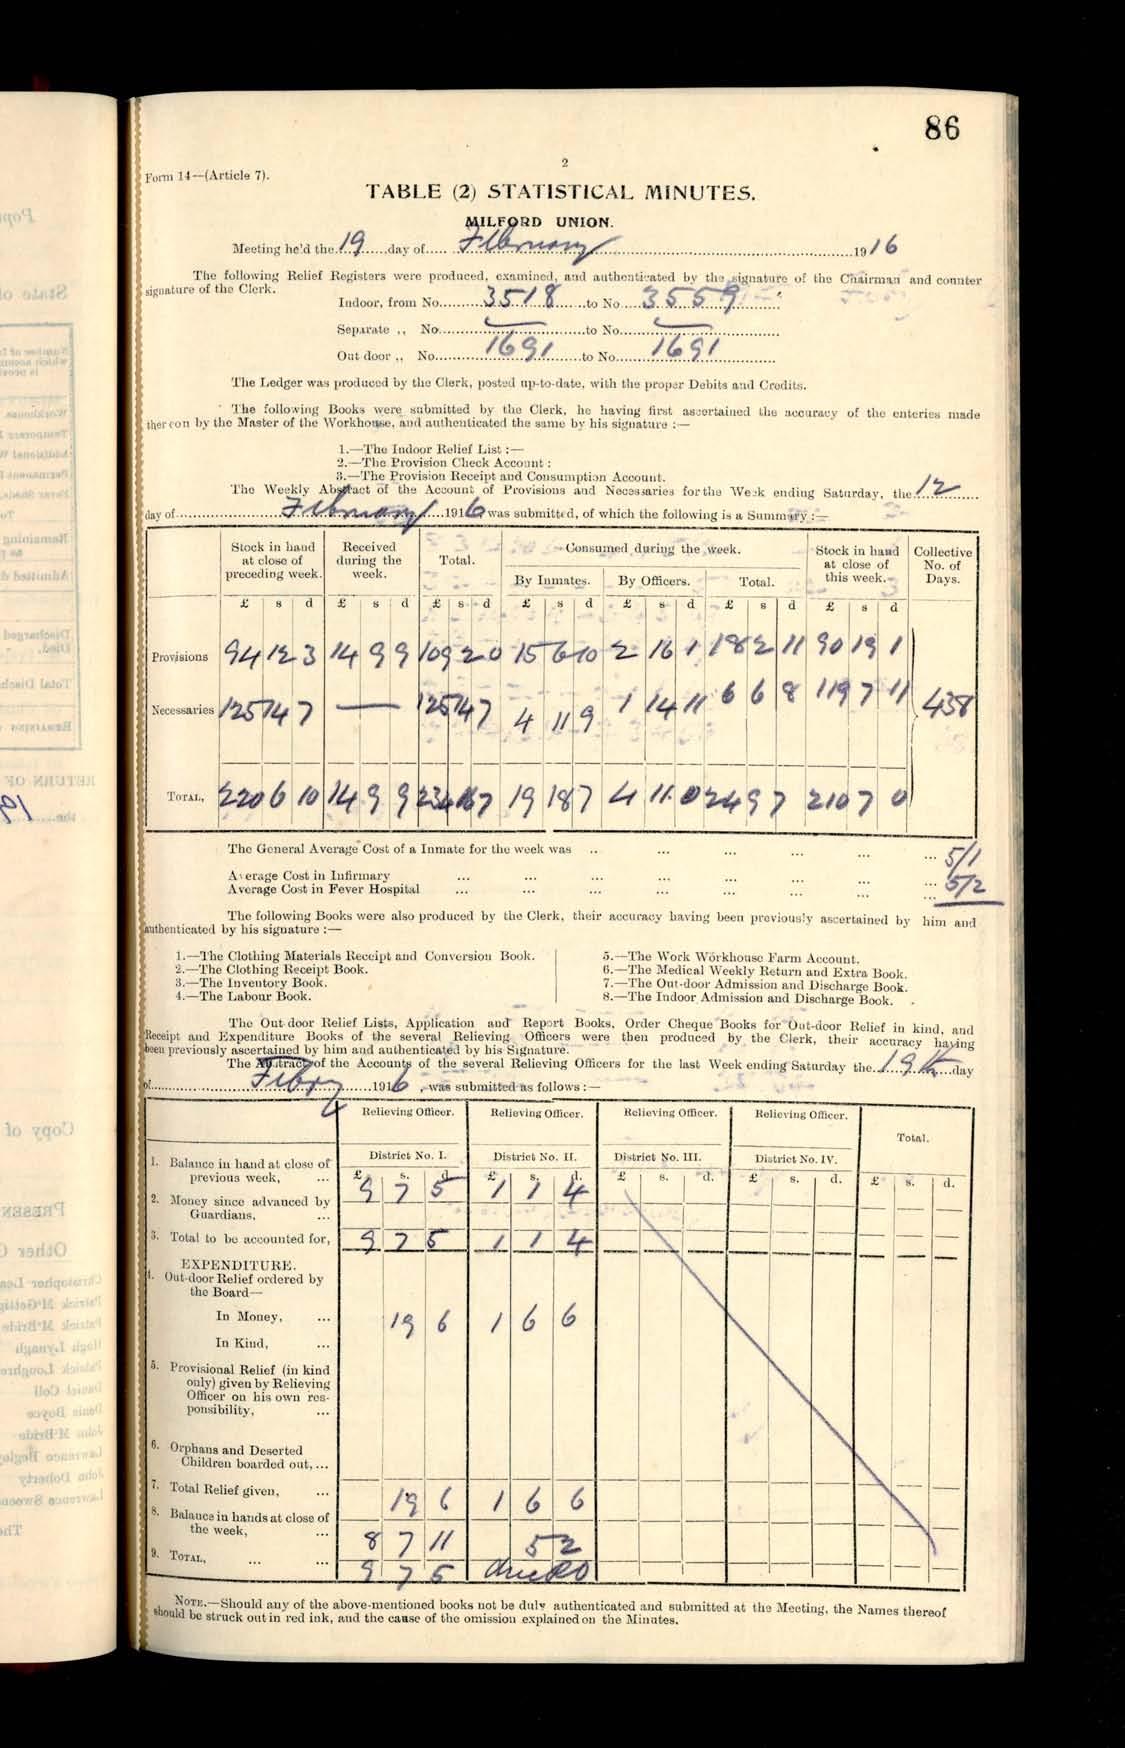 86
2
Form 14—(Article 7).
TABLE (2) STATISTICAL MINUTES.
MILFORD UNION.
Meeting he'd the 19 day of February 1916
The following Relief Registers were produced, examined, and authenticated by the signature of the Chairman and counter
signature of the Clerk.
Indoor, from No. 3518 to No. 3559
Separate ,, No. — to No. —
Out door ,, No. 1691 to No. 1691
The Ledger was produced by the Clerk, posted up-to-date, with the proper Debits and Credits.
The following Books were submitted by the Clerk, he having first ascertained the accuracy of the enteries made
thereon by the Master of the Workhouse, and authenticated the same by his signature :—
1.—The Indoor Relief List :—
2.—The Provision Check Account :
3.—The Provision Receipt and Consumption Account.
The Weekly Abstract of the Account of Provisions and Necessaries for the Week ending Saturday, the 12
day of February 1916 was submitted, of which the following is a Summary :—
Stock in hand at close of preceding week. Received during the week. Total. Consumed during the week. Stock in hand at close of this week. Collective No. of Days.
By Inmates. By Officers. Total.
£ s d £ s d £ s d £ s d £ s d £ s d £ s d
Provisions 94 12 3 14 9 9 109 2 0 15 6 10 2 16 1 18 2 11 90 19 1
Necessaries 125 14 7 — 125 14 7 4 11 9 1 14 11 6 6 8 119 7 11 438
TOTAL, 220 6 10 14 9 9 234 16 7 19 18 7 4 11 0 24 9 7 210 7 0
The General Average Cost of a Inmate for the week was ... 5/1
Average Cost in Infirmary ... 5/2
Average Cost in Fever Hospital ...
The following Books were also produced by the Clerk, their accuracy having been previously ascertained by him and
authenticated by his signature :—
1.—The Clothing Materials Receipt and Conversion Book.
2.—The Clothing Receipt Book.
3.—The Inventory Book.
4.—The Labour Book.
5.—The Work Workhouse Farm Account.
6.—The Medical Weekly Return and Extra Book.
7.—The Out-door Admission and Discharge Book.
8.—The Indoor Admission and Discharge Book.
The Out door Relief Lists, Application and Report Books, Order Cheque Books for Out-door Relief in kind, and
Receipt and Expenditure Books of the several Relieving Officers were then produced by the Clerk, their accuracy having
been previously ascertained by him and authenticated by his Signature.
The Abstract of the Accounts of the several Relieving Officers for the last Week ending Saturday the 19th day
of Febry 1916, was submitted as follows :—
Relieving Officer. Relieving Officer. Relieving Officer. Relieving Officer. Total.
District No. I. District No. II. District No. III. District No. IV.
£ s. d. £ s. d. £ s. d. £ s. d. £ s. d.
1. Balance in hand at close of
previous week, ... 9 7 5 1 1 4
2. Money since advanced by
Guardians, ...
3. Total to be accounted for, 9 7 5 1 1 4
EXPENDITURE.
4. Out-door Relief ordered by
the Board—
In Money, ... 19 6 1 6 6
In Kind, ...
5. Provisional Relief (in kind
only) given by Relieving
Officer on his own res-
ponsibility, ...
6. Orphans and Deserted
Children boarded out, ...
7. Total Relief given, ... 19 6 1 6 6
8. Balance in hands at close of
the week, ... 8 7 11 5 2
9. TOTAL, ... ... 9 7 5 due RO
NOTE.—Should any of the above-mentioned books not be duly authenticated and submitted at the Meeting, the Names thereof
should be struck out in red ink, and the cause of the omission explained on the Minutes.